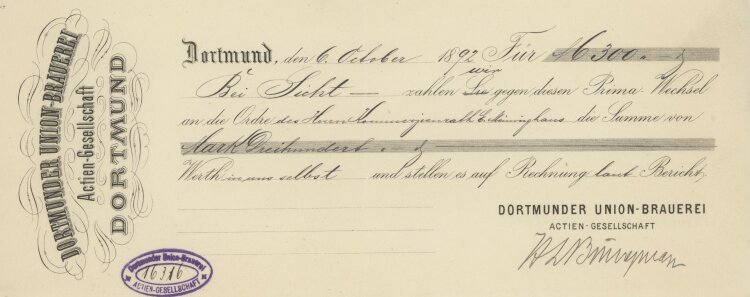 DORTMUNDER UNION-BRAUEREI
Actien-Gesellschaft
DORTMUND
Dortmund, den 6. October 1892 Für M 300.-
Bei Sicht zahlen Sie wir gegen diesen Prima-Wechsel
an die Ordre des Herrn Kommerzienrath die Summe von
Mark Dreihundert
Werth in uns selbst und stellen es auf Rechnung laut Bericht.
DORTMUNDER UNION-BRAUEREI
ACTIEN-GESELLSCHAFT
Dortmunder Union-Brauerei
16316
ACTIEN-GESELLSCHAFT